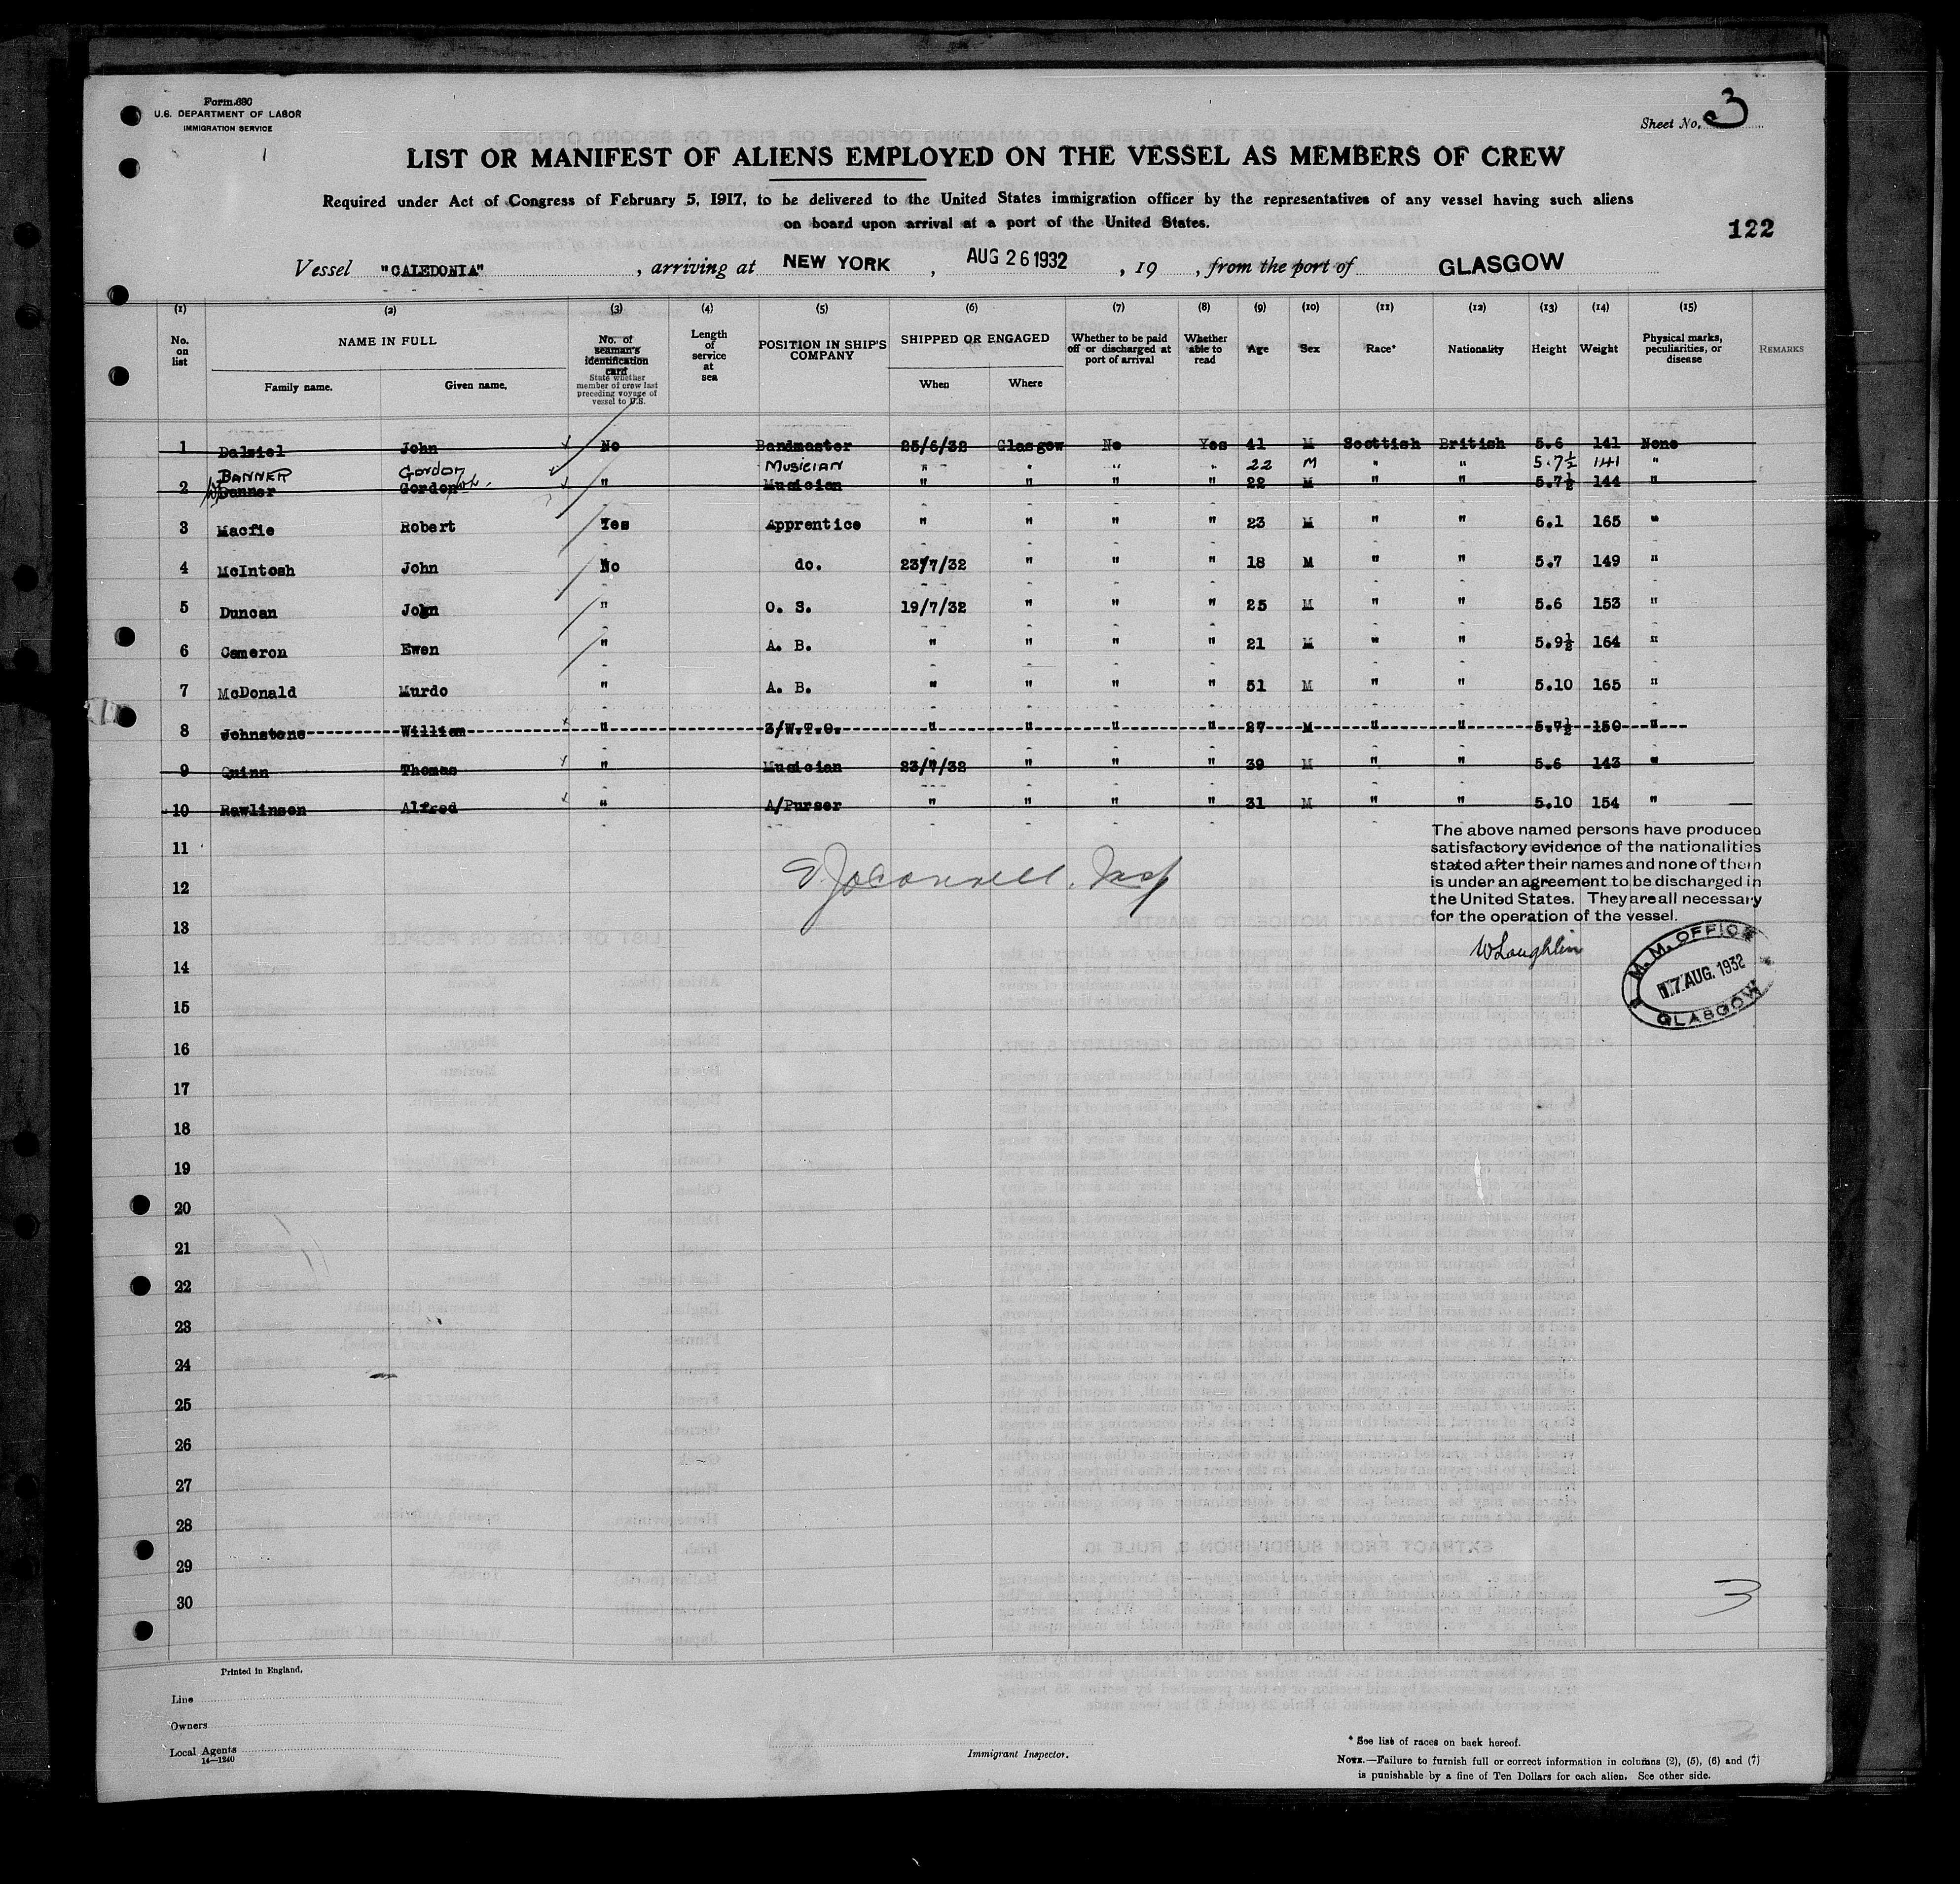 Form 680
U.S. DEPARTMENT OF LABOR
IMMIGRATION SERVICE
1
Sheet No. 3
LIST OR MANIFEST OF ALIENS EMPLOYED ON THE VESSEL AS MEMBERS OF CREW
Required under Act of Congress of February 5, 1917, to be delivered to the United States immigration officer by the representatives of any vessel having such aliens
on board upon arrival at a port of the United States.
122
Vessel "CALEDONIA", arriving at NEW YORK, AUG 26 1932, 19 , from the port of GLASGOW
(1) (2) (3) (4) (5) (6) (7) (8) (9) (10) (11) (12) (13) (14) (15)
No. on list NAME IN FULL Family name. Given name. No. of seaman's identification card State whether member of crew last preceding voyage of vessel to U.S. Length of service at sea POSITION IN SHIP'S COMPANY SHIPPED OR ENGAGED When Where Whether to be paid off or discharged at port of arrival Whether able to read Age Sex Race* Nationality Height Weight Physical marks, peculiarities, or disease REMARKS
1 Dalziel John No Bandmaster 25/6/32 Glasgow No Yes 41 M Scottish British 5.6 141 None
BANNER Gordon MUSICIAN " " " " 22 M " " 5.7½ 141 "
2 Banner Gordon " Musician " " " " 22 M " " 5.7½ 144 "
3 Macfie Robert Yes Apprentice " " " " 23 M " " 6.1 165 "
4 McIntosh John No do. 23/7/32 " " " 18 M " " 5.7 149 "
5 Duncan John " O. S. 19/7/32 " " " 25 M " " 5.6 153 "
6 Cameron Ewen " A. B. " " " " 21 M " " 5.9½ 164 "
7 McDonald Murdo " A. B. " " " " 51 M " " 5.10 165 "
8 Johnstone William " 3/W.T.O. " " " " 27 M " " 5.7½ 150 "
9 Quinn Thomas " Musician 23/7/32 " " " 39 M " " 5.6 143 "
10 Rawlinson Alfred " A/Purser " " " " 31 M " " 5.10 154 "
The above named persons have produced
satisfactory evidence of the nationalities
stated after their names and none of them
is under an agreement to be discharged in
the United States. They are all necessary
for the operation of the vessel.
WLoughlin
M. M. OFFICE
17 AUG. 1932
GLASGOW
11
12
13
14
15
16
17
18
19
20
21
22
23
24
25
26
27
28
29
30
3
Printed in England.
Line
Owners
Local Agents
14—1240
Immigrant Inspector.
* See list of races on back hereof.
NOTE.—Failure to furnish full or correct information in columns (2), (5), (6) and (7)
is punishable by a fine of Ten Dollars for each alien. See other side.